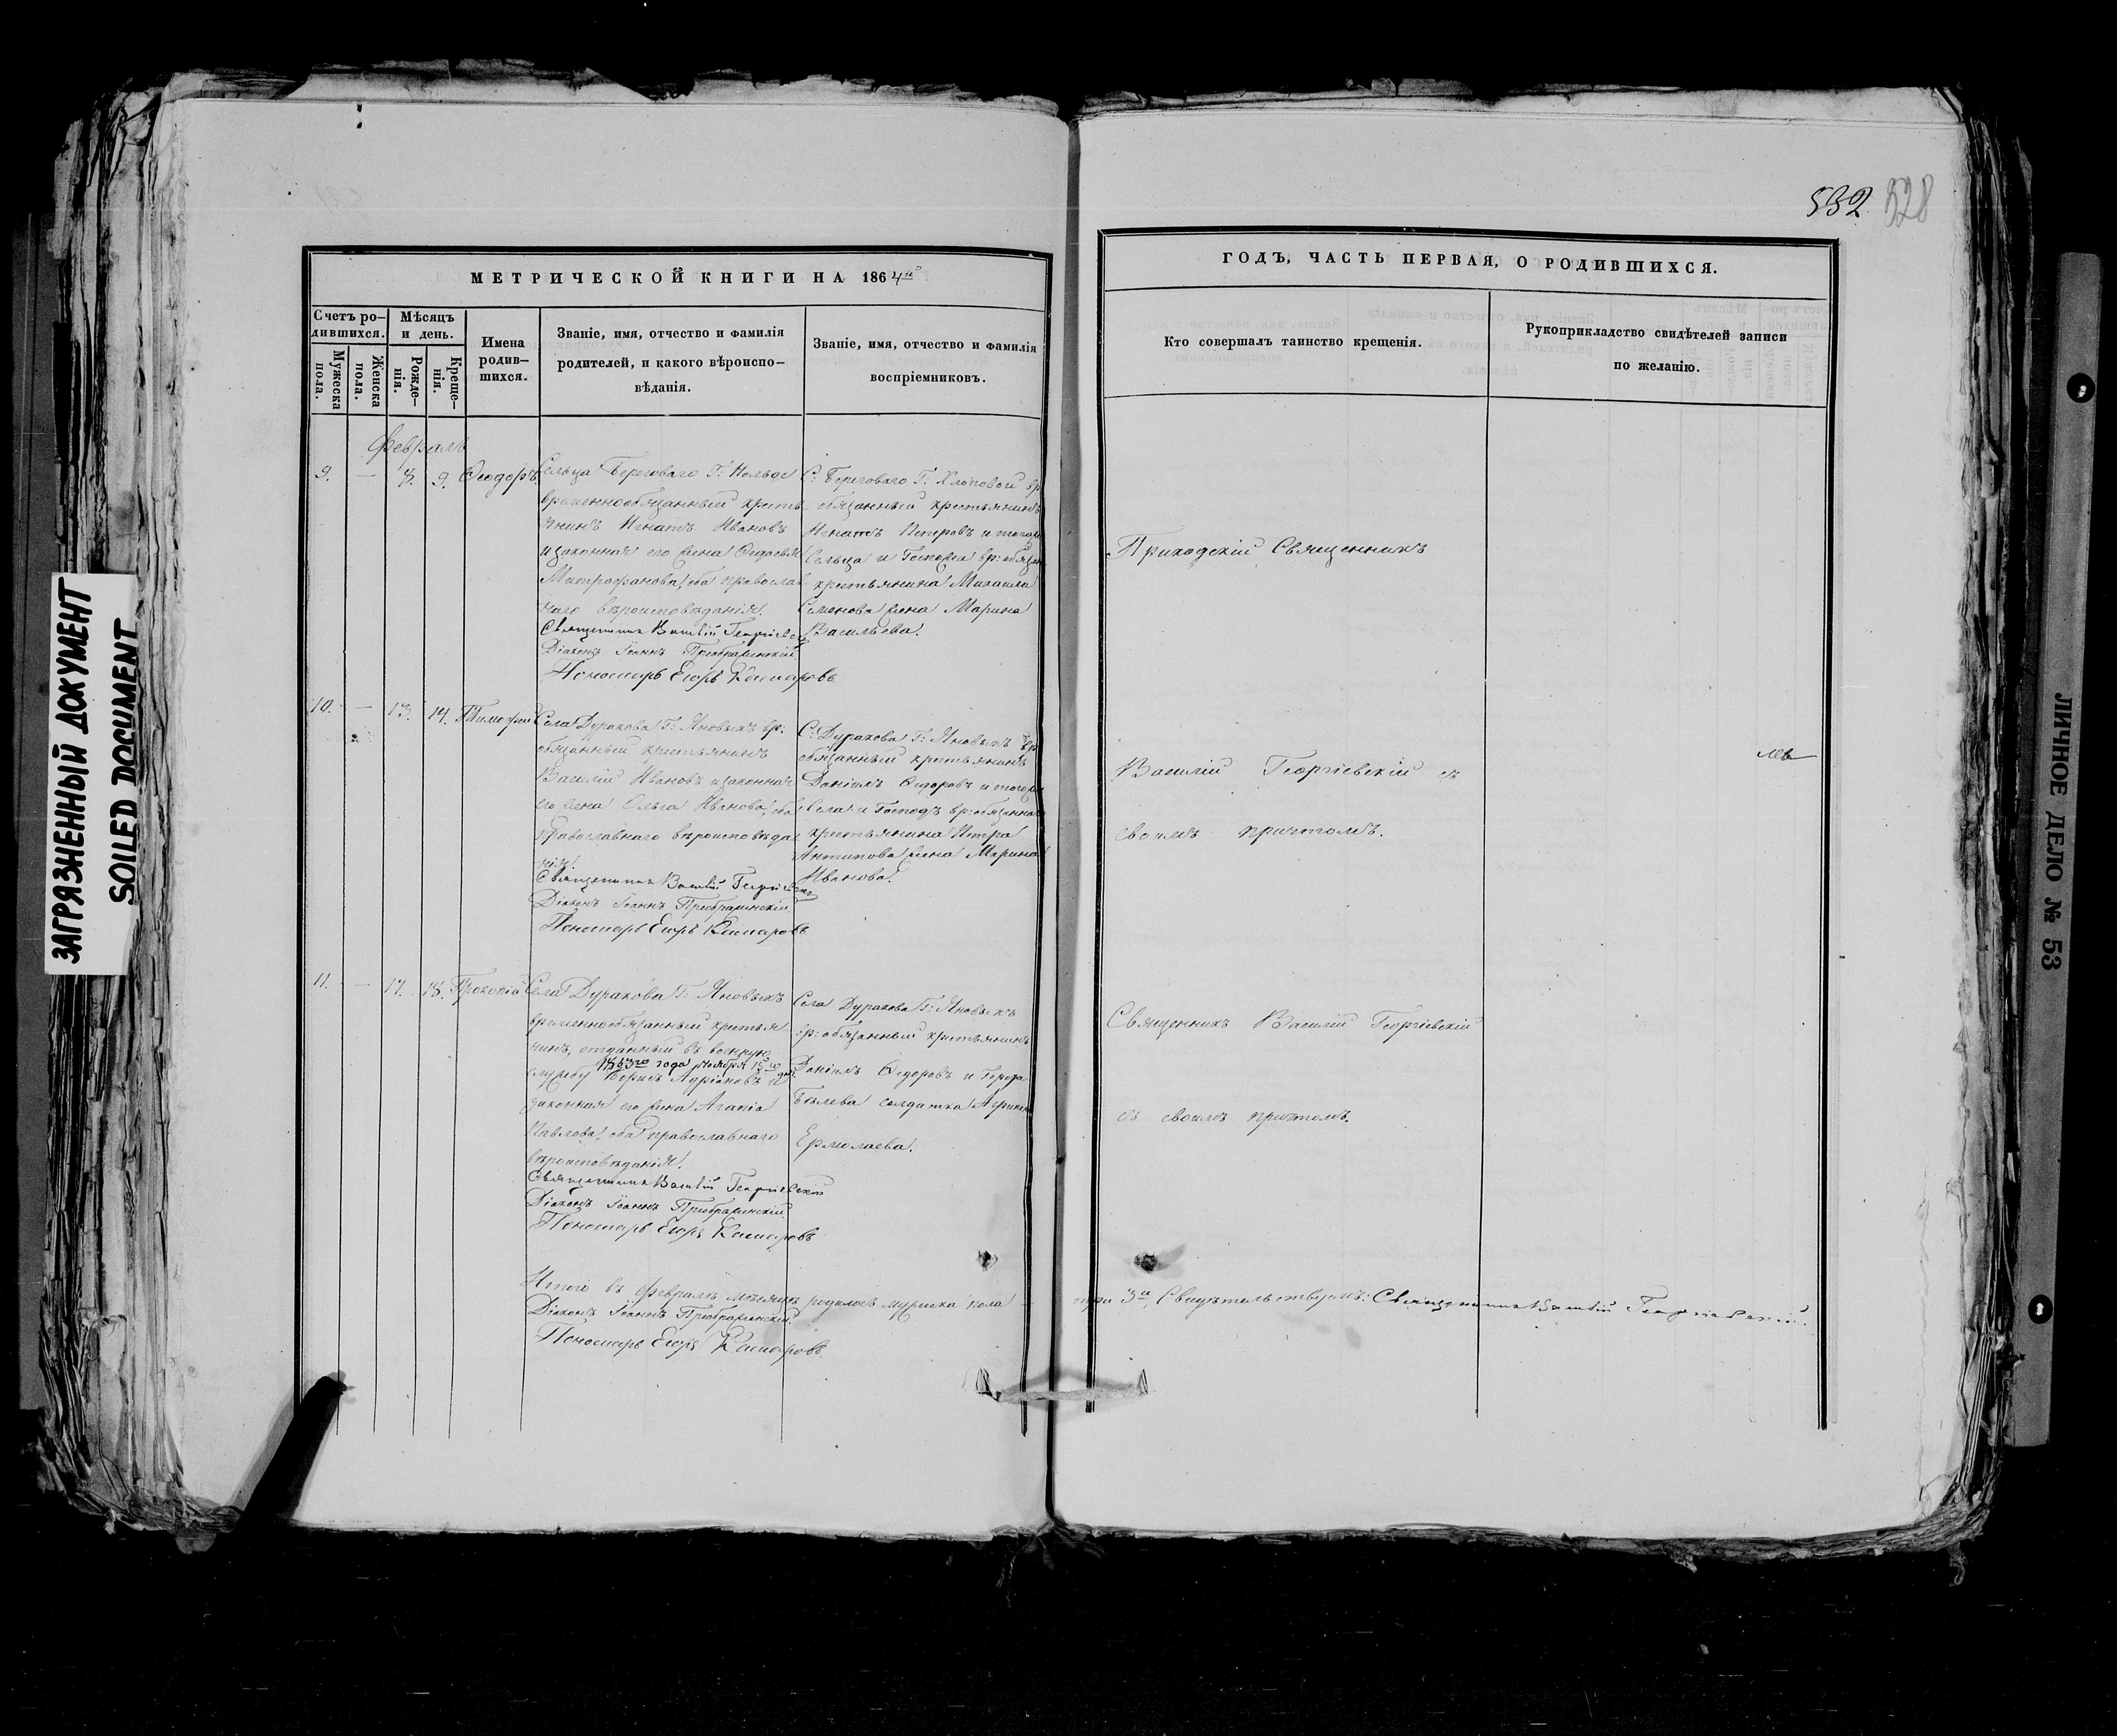 532 528
МЕТРИЧЕСКОЙ КНИГИ НА 1864й
ГОДЪ, ЧАСТЬ ПЕРВАЯ, О РОДИВШИХСЯ.
Счетъ ро-
дившихся.
Мужеска
пола.
Женска
пола.
Мѣсяцъ
и день.
Рожде-
нія.
Креще-
нія.
Имена
родив-
шихся.
Званіе, имя, отчество и фамилія
родителей, и какого вѣроиспо-
вѣданія.
Званіе, имя, отчество и фамилія
воспріемниковъ.
Кто совершалъ таинство крещенія.
Рукоприкладство свидѣтелей записи
по желанію.
Февраль
9. — 8. 9. Ѳеодоръ
Сельца Береговаго Г:
временнообязанный кресть-
янинъ Игнатъ Ивановъ
и законная его жена
Митрофанова, оба православ-
наго вѣроисповѣданія.
Священникъ Василій Георгіевскій
Діаконъ Іоаннъ Преображенскій
Пономарь Егоръ
С: Береговаго Г: Хлоповой вр:
обязанный крестьянинъ
Игнатъ Петровъ и тогоже
Сельца и Госпожи вр: обязан
крестьянина Михаила
Семенова жена Марина
Васильева.
Приходскій Священникъ
10. — 13. 14. Тимофей
Села Дуракова Г: Яновыхъ вр:
обязанный крестьянинъ
Василій Ивановъ и законная
его жена Ольга Иванова, оба
православнаго вѣроисповѣда
нія.
Священникъ Василій Георгіевскій
Діаконъ Іоаннъ Преображенскій
Пономарь Егоръ
С: Дуракова Г: Яновыхъ вр:
обязанный крестьянинъ
Даніилъ Ѳедоровъ и тогоже
Села и Господъ вр: обязаннаго
крестьянина Петра
Антипова жена Марина
Иванова.
Василій Георгіевскій съ
своимъ причтомъ.
11. — 17. 18. Прокопій
Села Дуракова Г: Яновыхъ
временнообязанный крестья-
нинъ, отданный въ военную
1863го года Ноября 15го дня
службу Борисъ Адріановъ и
законная его жена Агапія
Павлова, оба православнаго
вѣроисповѣданія.
Священникъ Василій Георгіевскій
Діаконъ Іоаннъ Преображенскій
Пономарь Егоръ
Села Дуракова Г: Яновыхъ
вр: обязанный крестьянинъ
Даніилъ Ѳедоровъ и Города
Бѣлева солдатка
Ермолаева.
Священникъ Василій Георгіевскій
съ своимъ причтомъ.
Итого въ Февралѣ мѣсяцѣ родилось мужеска пола три 3и, Свидѣтельствуемъ: Священникъ Василій Георгіевскій.
Діаконъ Іоаннъ Преображенскій
Пономарь Егоръ
ЗАГРЯЗНЕННЫЙ ДОКУМЕНТ
SOILED DOCUMENT
ЛИЧНОЕ ДЕЛО № 53